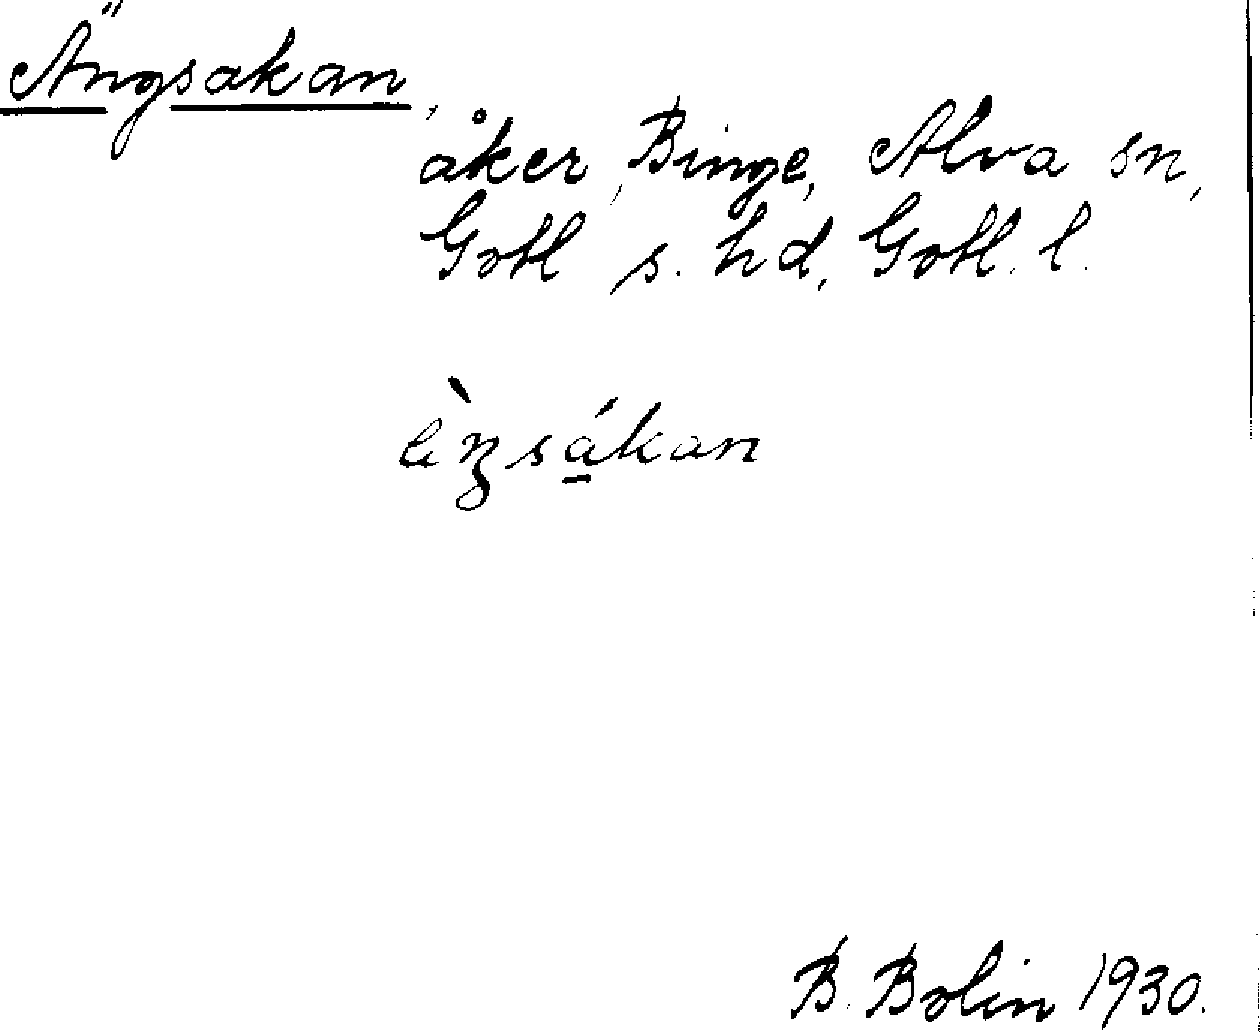 Ängsakan,
åker, Binge, Alva sn,
Gotl s. hd, Gotl. l.
B. Bolin 1930.